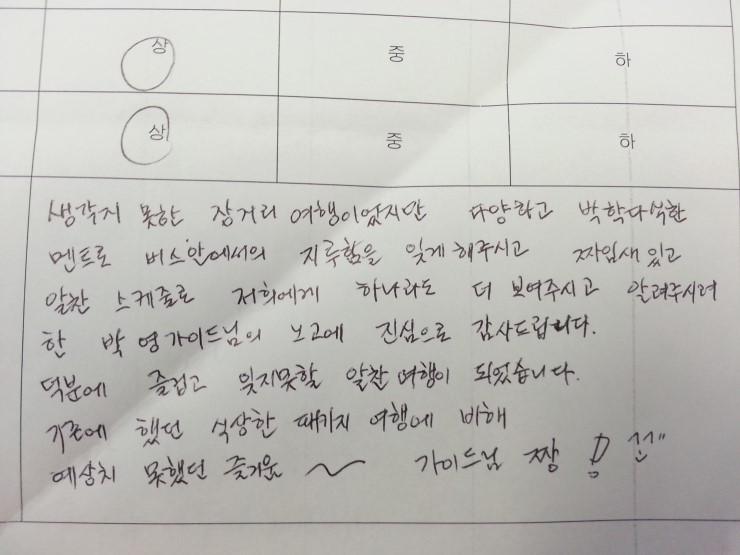 상 중 하
상 중 하
생각지 못한 장거리 여행이었지만 다양하고 박학다식한
멘트로 버스안에서의 지루함을 잊게 해주시고 짜임새 있고
알찬 스케쥴로 저희에게 하나라도 더 보여주시고 알려주시려
한 박 영가이드님의 노고에 진심으로 감사드립니다.
덕분에 즐겁고 잊지못할 알찬 여행이 되었습니다.
기존에 했던 식상한 패키지 여행에 비해
예상치 못했던 즐거운 ~ 가이드님 짱!